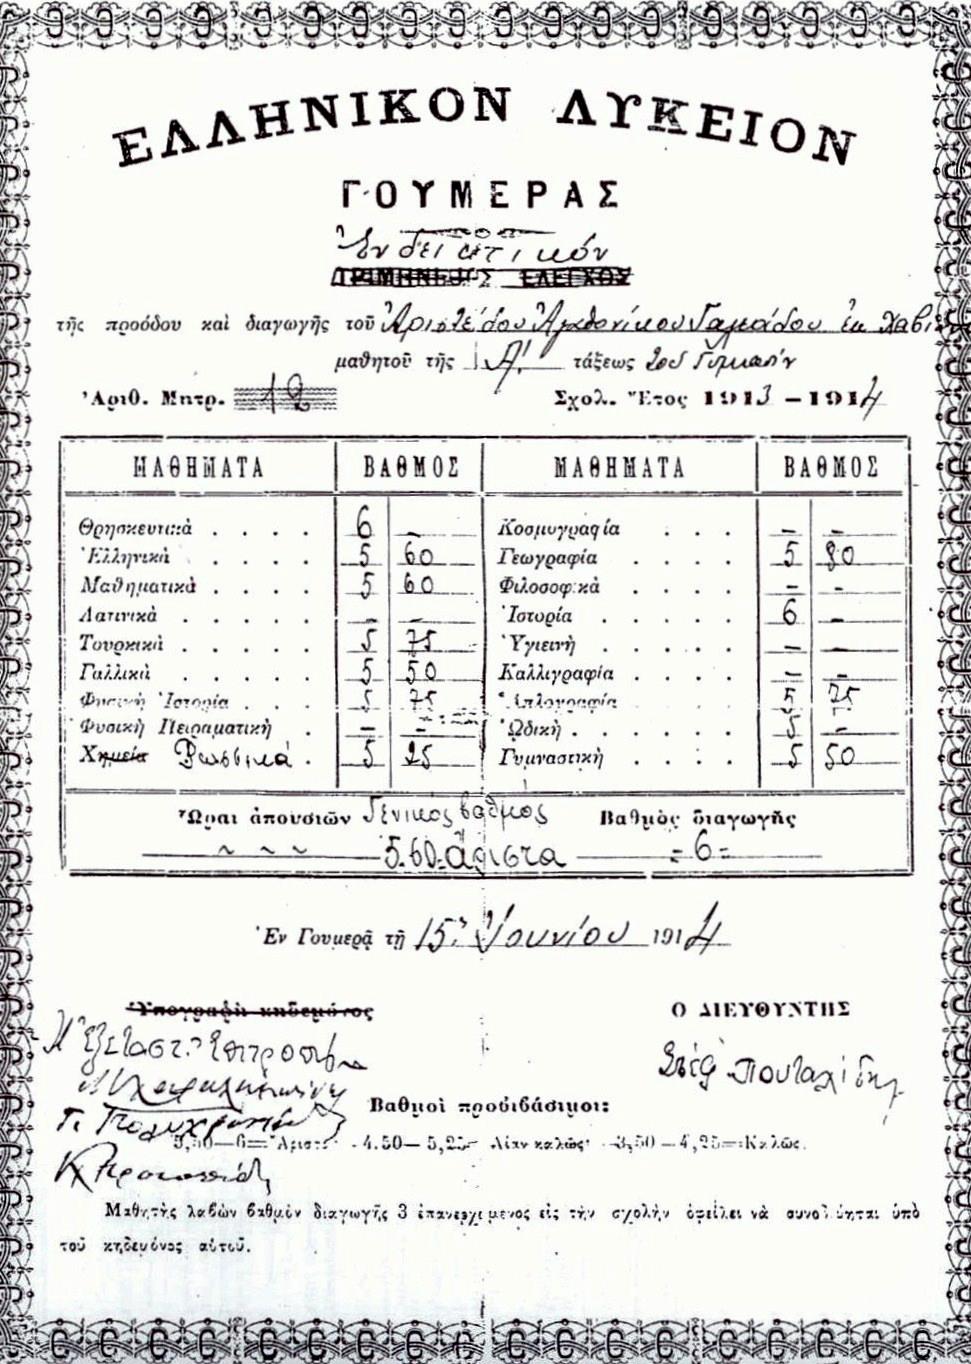 ΕΛΛΗΝΙΚΟΝ ΛΥΚΕΙΟΝ
ΓΟΥΜΕΡΑΣ
Ἐνδεικτικόν
ΤΡΙΜΗΝΙΑΙΟΣ ΕΛΕΓΧΟΣ
τῆς προόδου καὶ διαγωγῆς τοῦ Ἀριστείδου Ἀγαθονίκου ἐκ
μαθητοῦ τῆς Α΄. τάξεως
Ἀριθ. Μητρ. 12 Σχολ. Ἔτος 1913 – 1914
ΜΑΘΗΜΑΤΑ ΒΑΘΜΟΣ ΜΑΘΗΜΑΤΑ ΒΑΘΜΟΣ
Θρησκευτικὰ . . . . 6 – Κοσμογραφία . . . – –
Ἑλληνικὰ . . . . 5 60 Γεωγραφία . . . . 5 80
Μαθηματικὰ . . . . 5 60 Φιλοσοφικὰ . . . . – –
Λατινικὰ . . . . . – – Ἱστορία . . . . . 6 –
Τουρκικὰ . . . . . 5 75 Ὑγιεινὴ . . . . . – –
Γαλλικὰ . . . . . 5 50 Καλλιγραφία . . . . – –
Φυσικὴ Ἱστορία . . . 5 75 Ἁπλογραφία . . . . 5 75
Φυσικὴ Πειραματικὴ . – – ᾨδικὴ . . . . . . 5 –
Χημεία Ρωσσικά . 5 25 Γυμναστικὴ . . . . 5 50
Ὧραι ἀπουσιῶν Γενικὸς βαθμὸς Βαθμὸς διαγωγῆς
~ ~ ~ 5.60 Ἄριστα = 6 =
Ἐν Γουμερᾷ τῇ 15ῃ Ἰουνίου 1914
Ὑπογραφὴ κηδεμόνος Ο ΔΙΕΥΘΥΝΤΗΣ
Ἡ Ἐξεταστ. Ἐπιτροπή
Βαθμοὶ προβιβάσιμοι:
5,50—6=Ἄριστα 4.50— 5,25= Λίαν καλῶς 3,50 — 4,25=Καλῶς.
Μαθητὴς λαβὼν βαθμὸν διαγωγῆς 3 ἐπανερχόμενος εἰς τὴν σχολὴν ὀφείλει νὰ συνοδεύηται ὑπὸ
τοῦ κηδεμόνος αὐτοῦ.